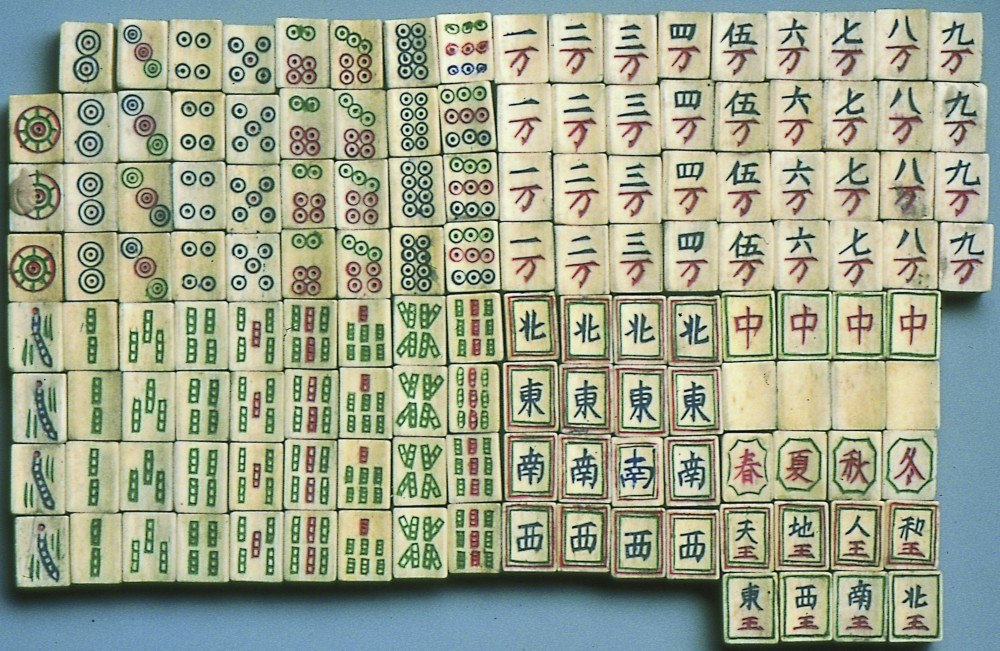 一万 二万 三万 四万 伍万 六万 七万 八万 九万
一万 二万 三万 四万 伍万 六万 七万 八万 九万
一万 二万 三万 四万 伍万 六万 七万 八万 九万
一万 二万 三万 四万 伍万 六万 七万 八万 九万
北 北 北 北 中 中 中 中
東 東 東 東
南 南 南 南 春 夏 秋 冬
西 西 西 西 天王 地王 人王 和王
東王 西王 南王 北王